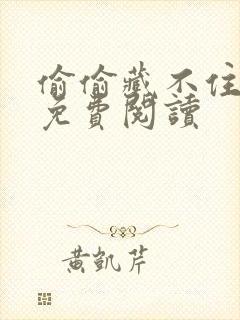 偷偷藏不住
免費閱讀
黃凱芹